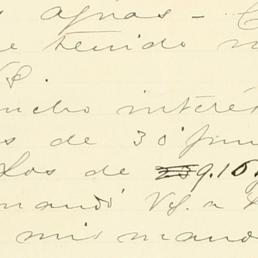 aguas - 
e tenido
Vd.
mucho interés
s de 30 Jun
los de 9.10
mandó Vd. a
mis mano